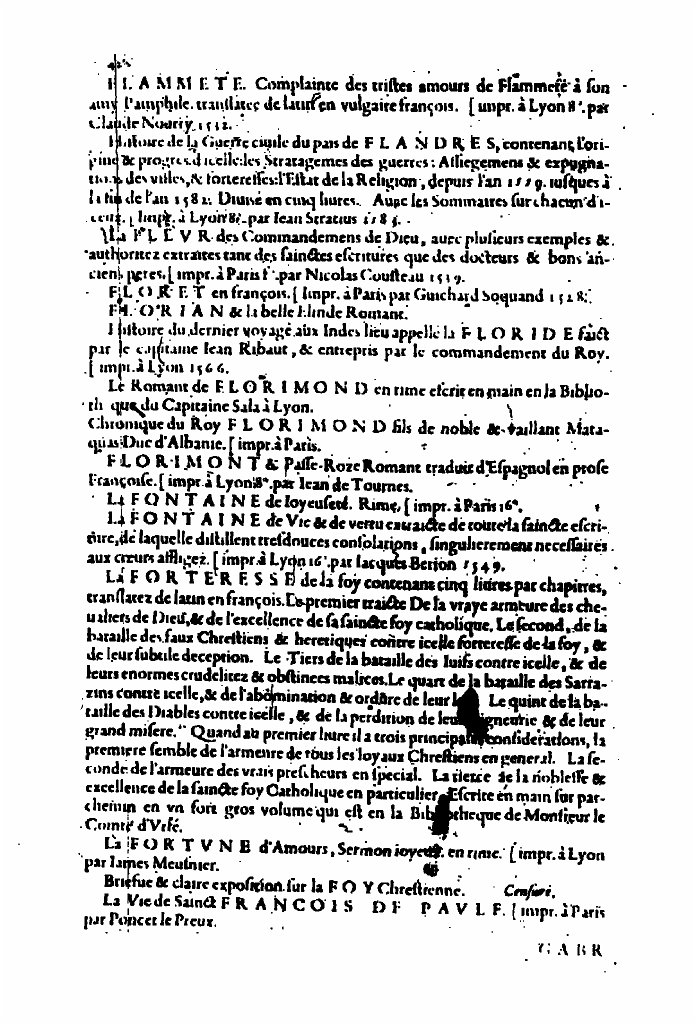 FLAMMETE. Complainte des tristes amours de Flammete à son
amy Pamphile. translatee de latin en vulgaire françois. [impr. à Lyon 8°. par
Claude Nourry. 1532.
Histoire de la Guerre ciuile du païs de FLANDRES, contenant l'ori-
gine & progres d'icelle: les Stratagemes des guerres: Assiegemens & expugna-
tions des villes, & forteresses: l'Estat de la Religion, depuis l'an 1559. iusques à
la fin de l'an 1582. Diuisé en cinq liures. Auec les Sommaires sur chacun d'i-
ceux. [Impr. à Lyon 8°. par Iean Stratius
La FLEVR des Commandemens de Dieu, auec plusieurs exemples &
authoritez extraites tant des sainctes escritures que des docteurs & bons an-
ciens peres. [impr. à Paris f°. par Nicolas Cousteau 1539.
FLORET en françois. [Impr. à Paris par Guichard Soquand 1528.
FLORIAN & la belle Elinde Romant.
Histoire du dernier voyage aux Indes lieu appellé la FLORIDE faict
par le capitaine Iean Ribaut, & entrepris par le commandement du Roy.
[impr. à Lyon 1566.
Le Romant de FLORIMOND en rime escrit en main en la Biblio-
theque du Capitaine Sala à Lyon.
Chronique du Roy FLORIMOND fils de noble & vaillant Mata-
quas Duc d'Albanie. [impr. à Paris.
FLORIMONT & Passe-Roze Romant traduit d'Espagnol en prose
Françoise. [impr. à Lyon 8°. par Iean de Tournes.
La FONTAINE de Ioyeuseté. Rime, [impr. à Paris 16°.
La FONTAINE de Vie & de vertu extraicte de toute la saincte escri-
ture, de laquelle distillent tresdouces consolations, singulierement necessaires
aux cœurs affligez. [impr. à Lyon 16°. par Iacques Berion 1549.
La FORTERESSE de la foy contenant cinq liures par chapitres,
translatez de latin en françois. Le premier traicte De la vraye armeure des che-
ualiers de Dieu, & de l'excellence de sa saincte foy catholique. Le second, de la
bataille des faux Chrestiens & heretiques contre icelle forteresse de la foy, &
de leur subtile deception. Le Tiers de la bataille des Iuifs contre icelle, & de
leurs enormes crudelitez & obstinees malices. Le quart de la bataille des Sarra-
zins contre icelle, & de l'abomination & ordure de leur Le quint de la ba-
taille des Diables contre icelle, & de la perdition de leur seigneurie & de leur
grand misere. Quand au premier liure il a trois principales considerations, la
premiere semble de l'armeure de tous les loyaux Chrestiens en general. La se-
conde de l'armeure des vrais prescheurs en special. La tierce de la noblesse &
excellence de la saincte foy Catholique en particulier. Escrite en main sur par-
chemin en vn fort gros volume qui est en la Bibliotheque de Monsieur le
Comte d'Vrfé.
La FORTVNE d'Amours, Sermon ioyeux. en rime. [impr. à Lyon
par Iames Meusnier.
Briefue & claire exposition sur la FOY Chrestienne. Censuré.
La Vie de Sainct FRANCOIS DE PAVLE. [impr. à Paris
par Poncet le Preux.
GABR